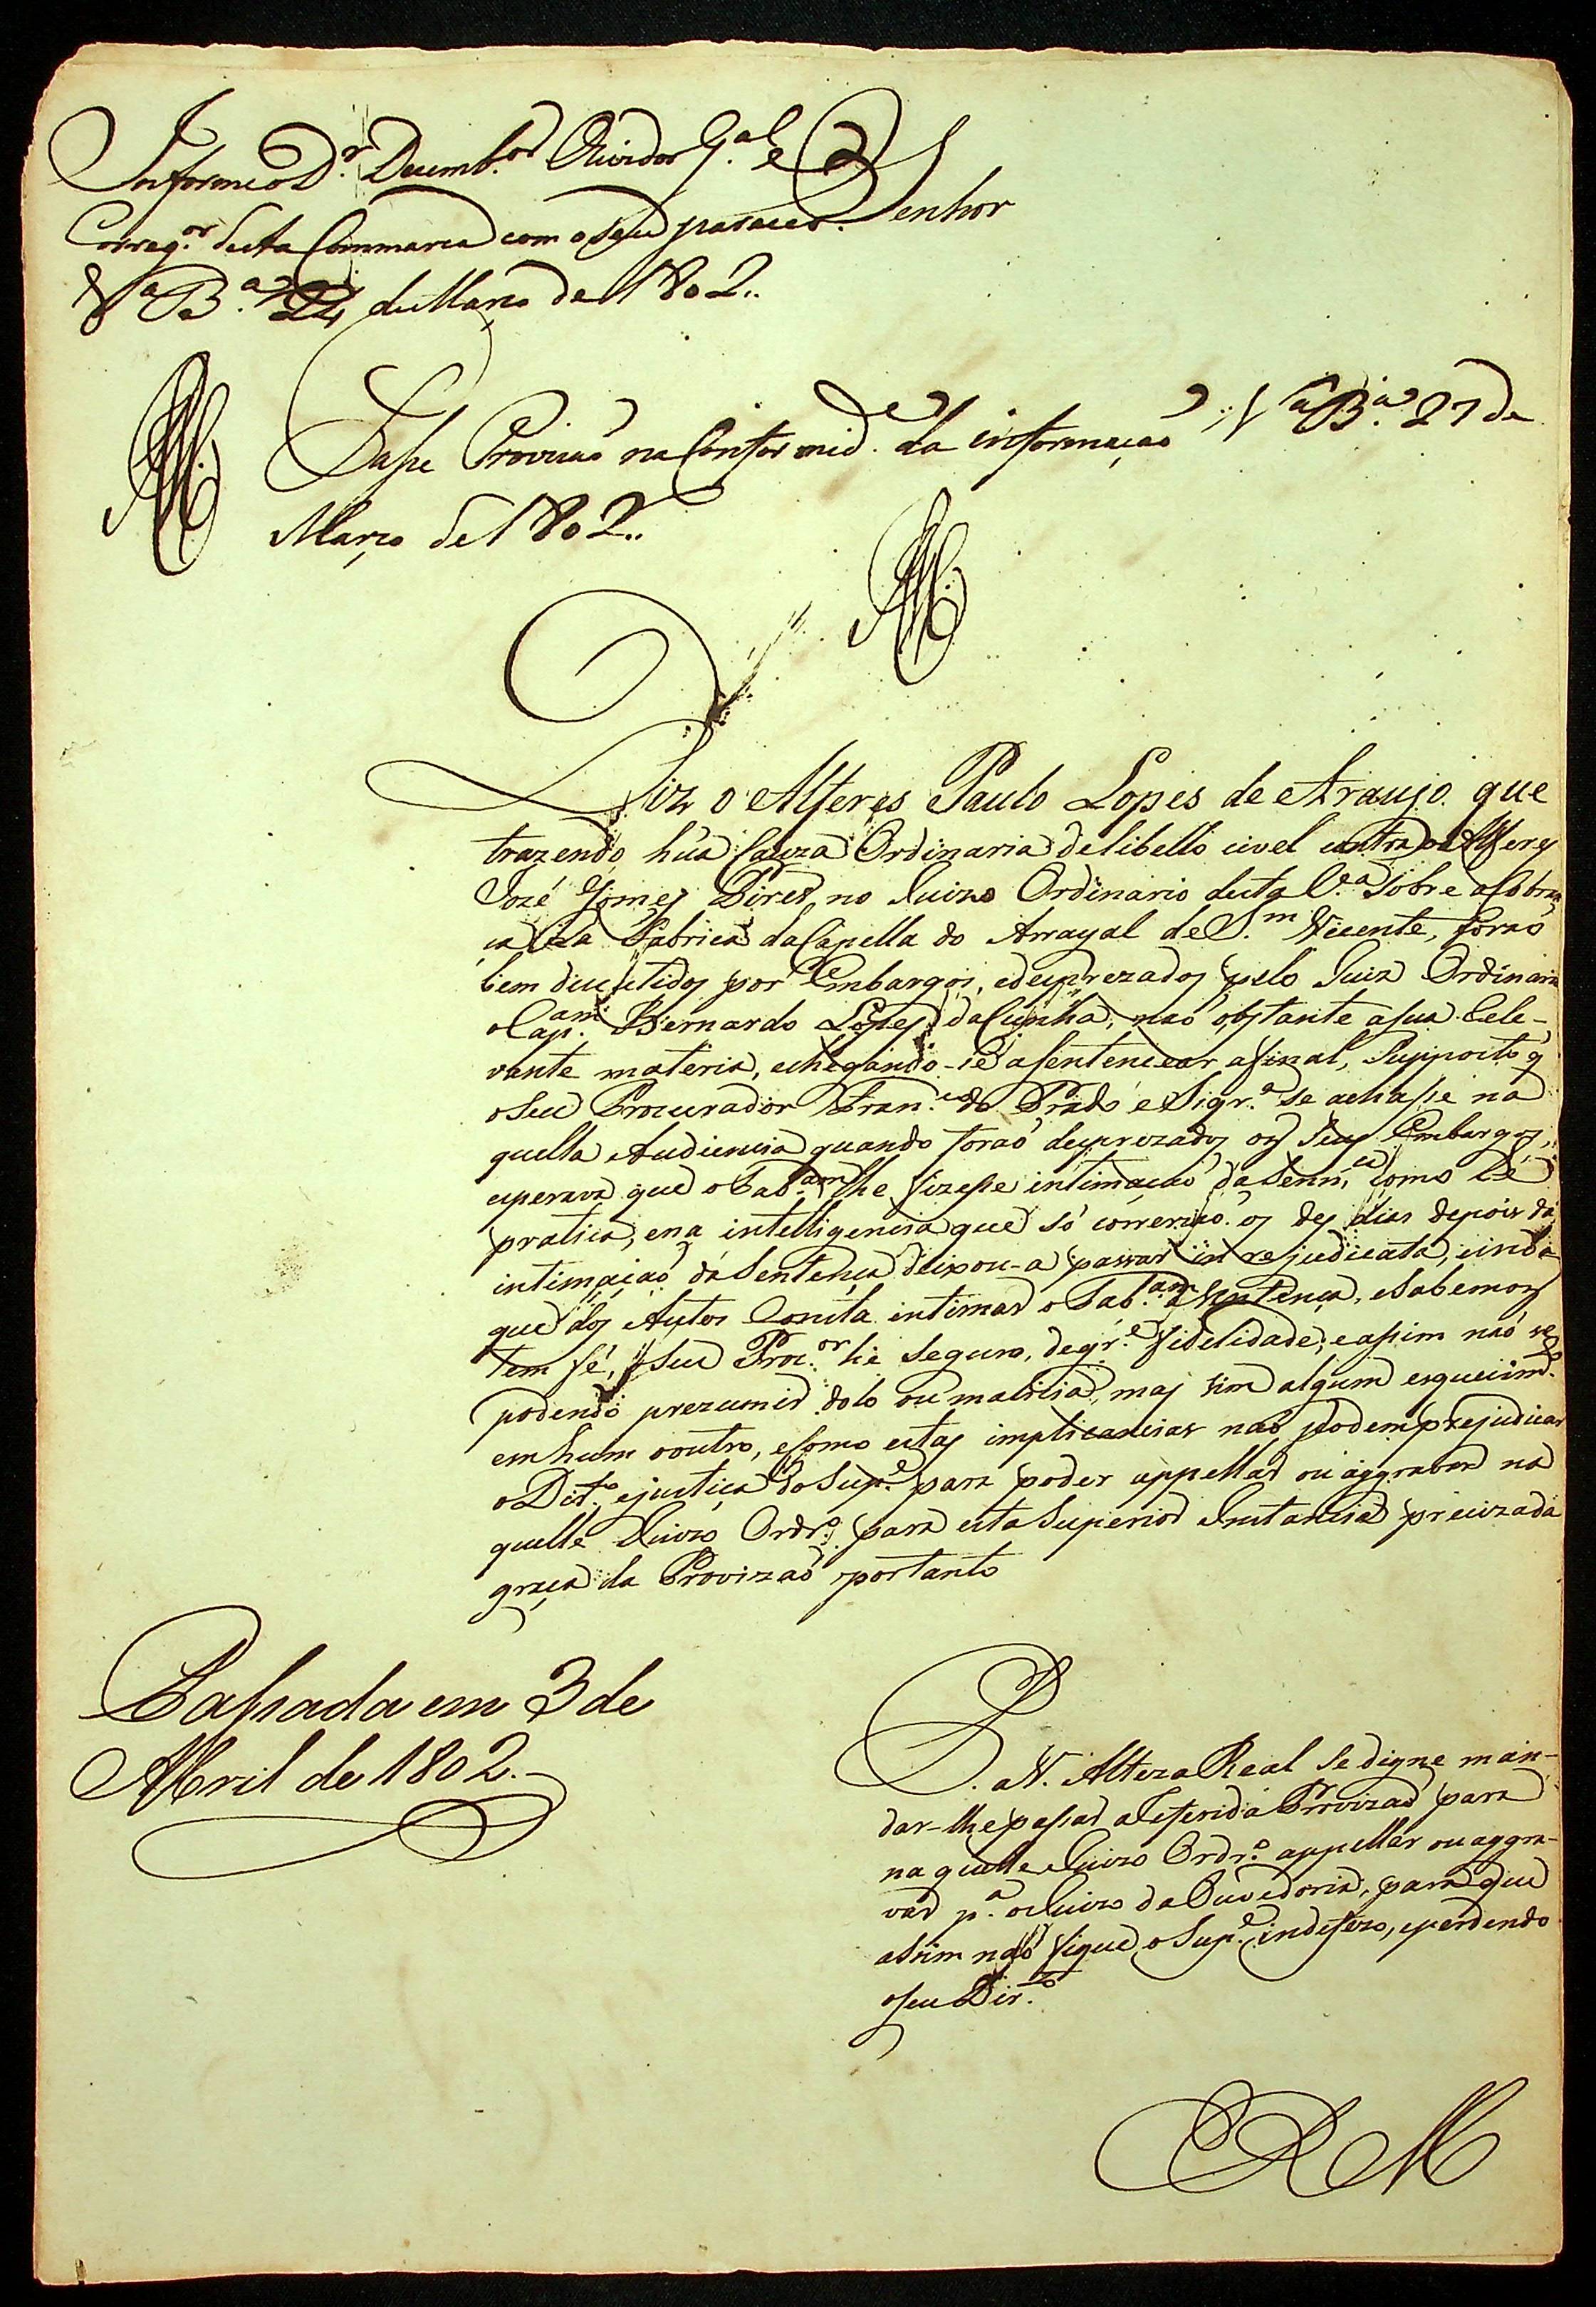 Informe o D.r Dezemb.or Ouvidor G.al e
Correg.or desta Commarca com o seu parecer.
Senhor
V.a B.a 24 de Março de 1802..
Passe Provizaõ na Conformid.e da informaçaõ V.a B.a 27 de
Março de 1802..
Diz o Alferes Paulo Lopes de Araujo que
trazendo hũa Cauza Ordinaria de libello civel contra o Alferes
Jozé Gomes Pires, no Juizo Ordinario desta C.a sobre a Cobran
ça da Fabrica da Capella do Arrayal de S.m Vicente, foraõ
bem discutidos por Embargos, e desprezados pelo Juiz Ordinario
o Cap.am Bernardo Lopes da Cunha, naõ obstante a sua rele-
vante materia, e chegando-se a sentencear a final, supposto q̃
o seu Procurador Fran.co do Prado e Siqr.a se achasse na
quella Audiencia quando foraõ desprezados os seus Embargos,
esperava que o Tab.am lhe fizesse intimaçaõ da Senn.ça como he
pratica, e na intelligencia que só correriaõ os des dias depois da
intimaçaõ da Sentença deixou-a passar in re judicata, e inda
que dos Autos Consta intimar o Tab.am a Sentença, e sabemos
tem fé, o seu Proc.or he seguro, de gr.e fidelidade; e assim naõ se
podendo prezumir dolo ou malicia, mas sim algum esquecim.to
em hum o outro, e como estas implicancias naõ podem prejudicar
o Dir.to e justiça do Sup.e para poder appellar ou aggravar na
quelle Juizo Ordr.o para esta Superior Instancia preciza da
graça da Provizaõ portanto
P. a V. Alteza Real se digne man-
dar-lhe passar a referida Provizaõ para
naquelle Juizo Ordr.o appellar ou aggra-
var p.a o Juizo da Ouvedoria, para que
assim naõ fique o Sup.e indefezo, e perdendo
o seu Dir.to
Passada em 3 de
Abril de 1802.-
E R M